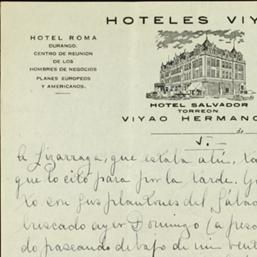 HOTELES VIY
HOTEL ROMA
DURANGO.
CENTRO DE REUNION
DE LOS
HOMBRES DE NEGOCIOS
PLANES EUROPEOS
Y AMERICANOS.
HOTEL SALVADOR
TORREON
VIYAO HERMANO
de
5.
la Lizarraga, que estaba allí, la
que lo citó para por la tarde.
ro con sus plantones del Sábado
buscado ayer Domingo (a pesa
do paseando debajo de mi vent